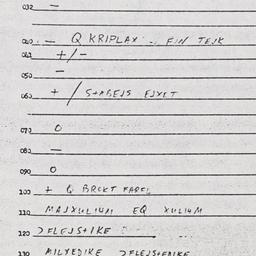 032 —
040 — Q KRIPLAX – FIN TEJK
043 +/-
050 —
060 + / S+ABEJS EJXCT
070 O
080 —
090 O
100 + Q BRCKT FARCL
110 MAJXULIUM EQ XULIUM
120 >FLEJS+IKE
130 MILYEDIKE >FLEJS+ENIKE